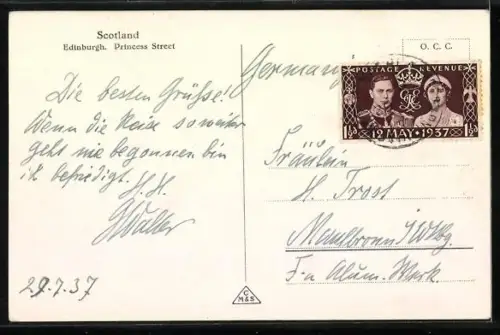 Scotland
Edinburgh. Princess Street
O. C. C.
Germany
POSTAGE REVENUE
1½ 12 MAY · 1937 1½
Die besten Grüsse!
Wenn die Reise so weiter
geht wie begonnen bin
ich befriedigt.
H. H.
Fräulein
H. Trost
Maulbronn i/Wttbg.
Fa Alum. Werk.
29.7.37
C
M&S